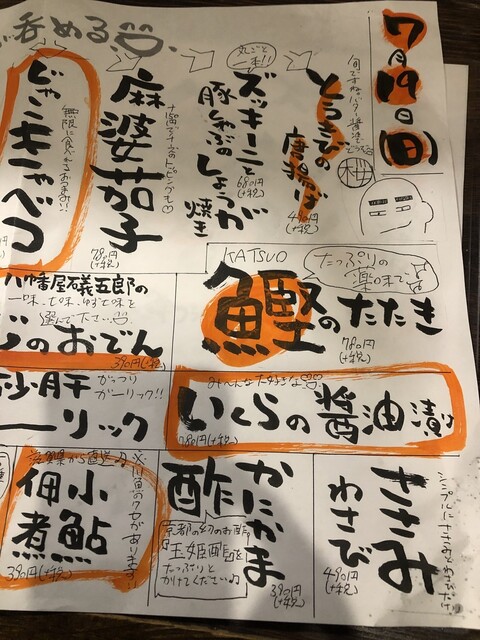 7月19日(日)
とうきびの
唐揚げ
490円
(+税)
丸ごと
一本!!
ズッキーニと
豚しゃぶの
しょうが
焼き
680円
(+税)
麻婆茄子
780円
(+税)
無限に食べれるおつまみ!!
じゃこキャベツ
呑める
KATSUO
たっぷりの
薬味で
鰹のたたき
780円
(+税)
八幡屋礒五郎の
一味、七味、ゆず七味を
選んで下さい
のおでん
390円(+税)
みーんな大好きな
いくらの醤油漬け
780円
(+税)
砂肝
がっつり
ガーリック!!
ーリック
ささみ
わさび
490円
(+税)
かにかま
酢
京都の幻のお酢
「玉姫酢」を
たっぷりと
かけてください♪
390円
(+税)
滋賀県から直送
※川魚のクセがあります!!
小鮎
佃煮
390円(+税)